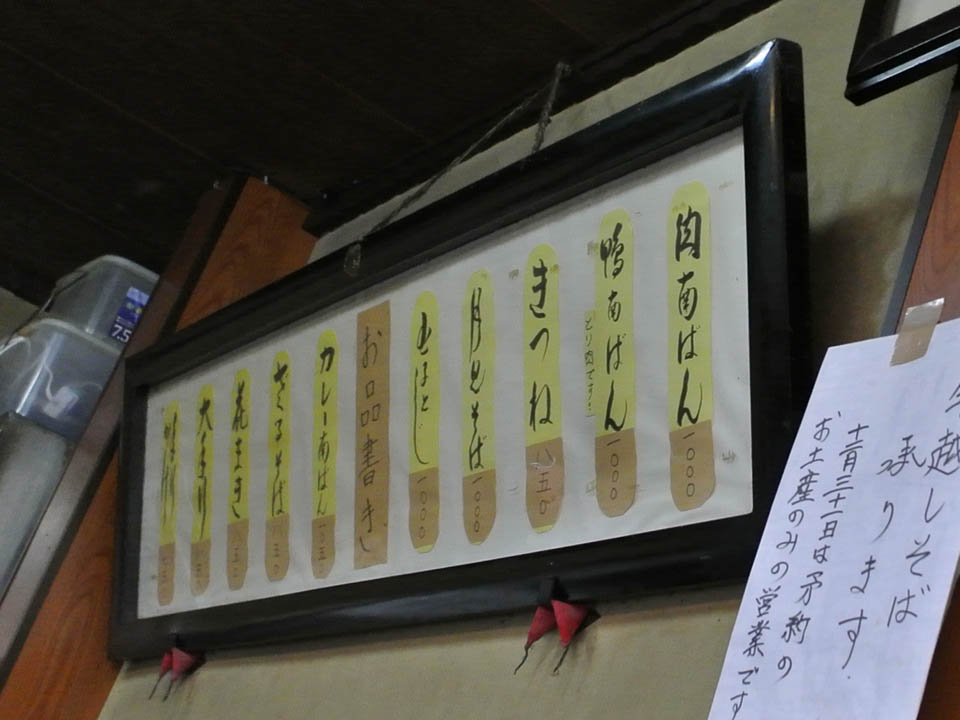 肉南ばん 一〇〇〇
鴨南ばん 一〇〇〇
きつね 八五〇
月見そば 一〇〇〇
玉とじ 一〇〇〇
お品書き
カレー南ばん 一〇五〇
ざるそば 八五〇
花まき
大もり
越しそば
承ります
十二月三十一日は予約の
お土産のみの営業です
7.5